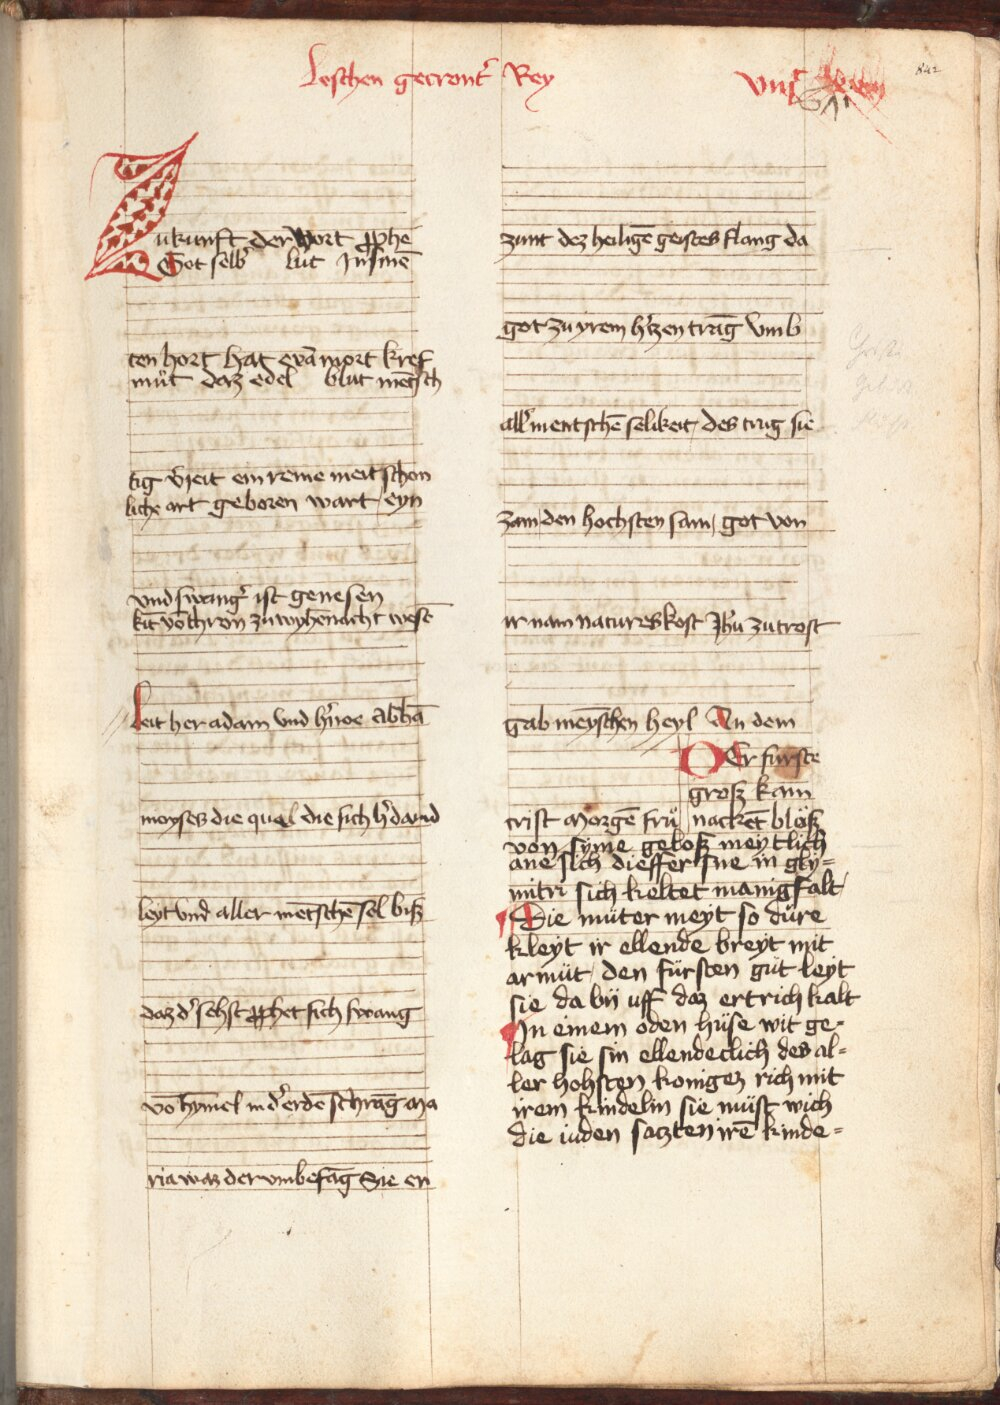 Leschen gecront̾ Rey
842
Zukunft der wort ꝓphe
Got selb̾ lut In sinē
ten hort hat evā mort kref
mut daz edel blut mētsch
tig v̾seit ein reine meit schon
liche art geboren wart eyn
vnd swang̾ ist genesen
keit vō thron zu wyhēnacht wesē
Leit her adam vnd h̾ noe Abhā
moyses die qual die sich h̾ dauid
leyt vnd aller mētschē sel biß
daz d̾ sehst ꝓphet sich swang
vō hymel in d̾ erdē schrāg Ma
ria waz der vmbefāg Sie en
zunt dez heiligē geistes flang da
got zu yrem h̾tzen trāg vmb
all̾ mentschē selikeit / des trug sie
zam den hochsten sam / got von
ir nam natures kost Jh̾u zu trost
gab meyschen heyl An dem
DEr furste
groß kam
crist morgē frü nackēt bloß
von syme geloß meytlich
ane sich dieffer sne in gly=
mitri sich keltet manigfalt
Die müter meyt so düre
kleyt ir ellende breyt mit
armüt / den fürsten güt leyt
sie da bij uff daz ertrich kalt
In einem oden hüse wit ge=
lag sie sin ellendeclich des al=
ler hohsten konigez rich mit
irem kindelin sie müst wich
die iuden saczten irē kinde=